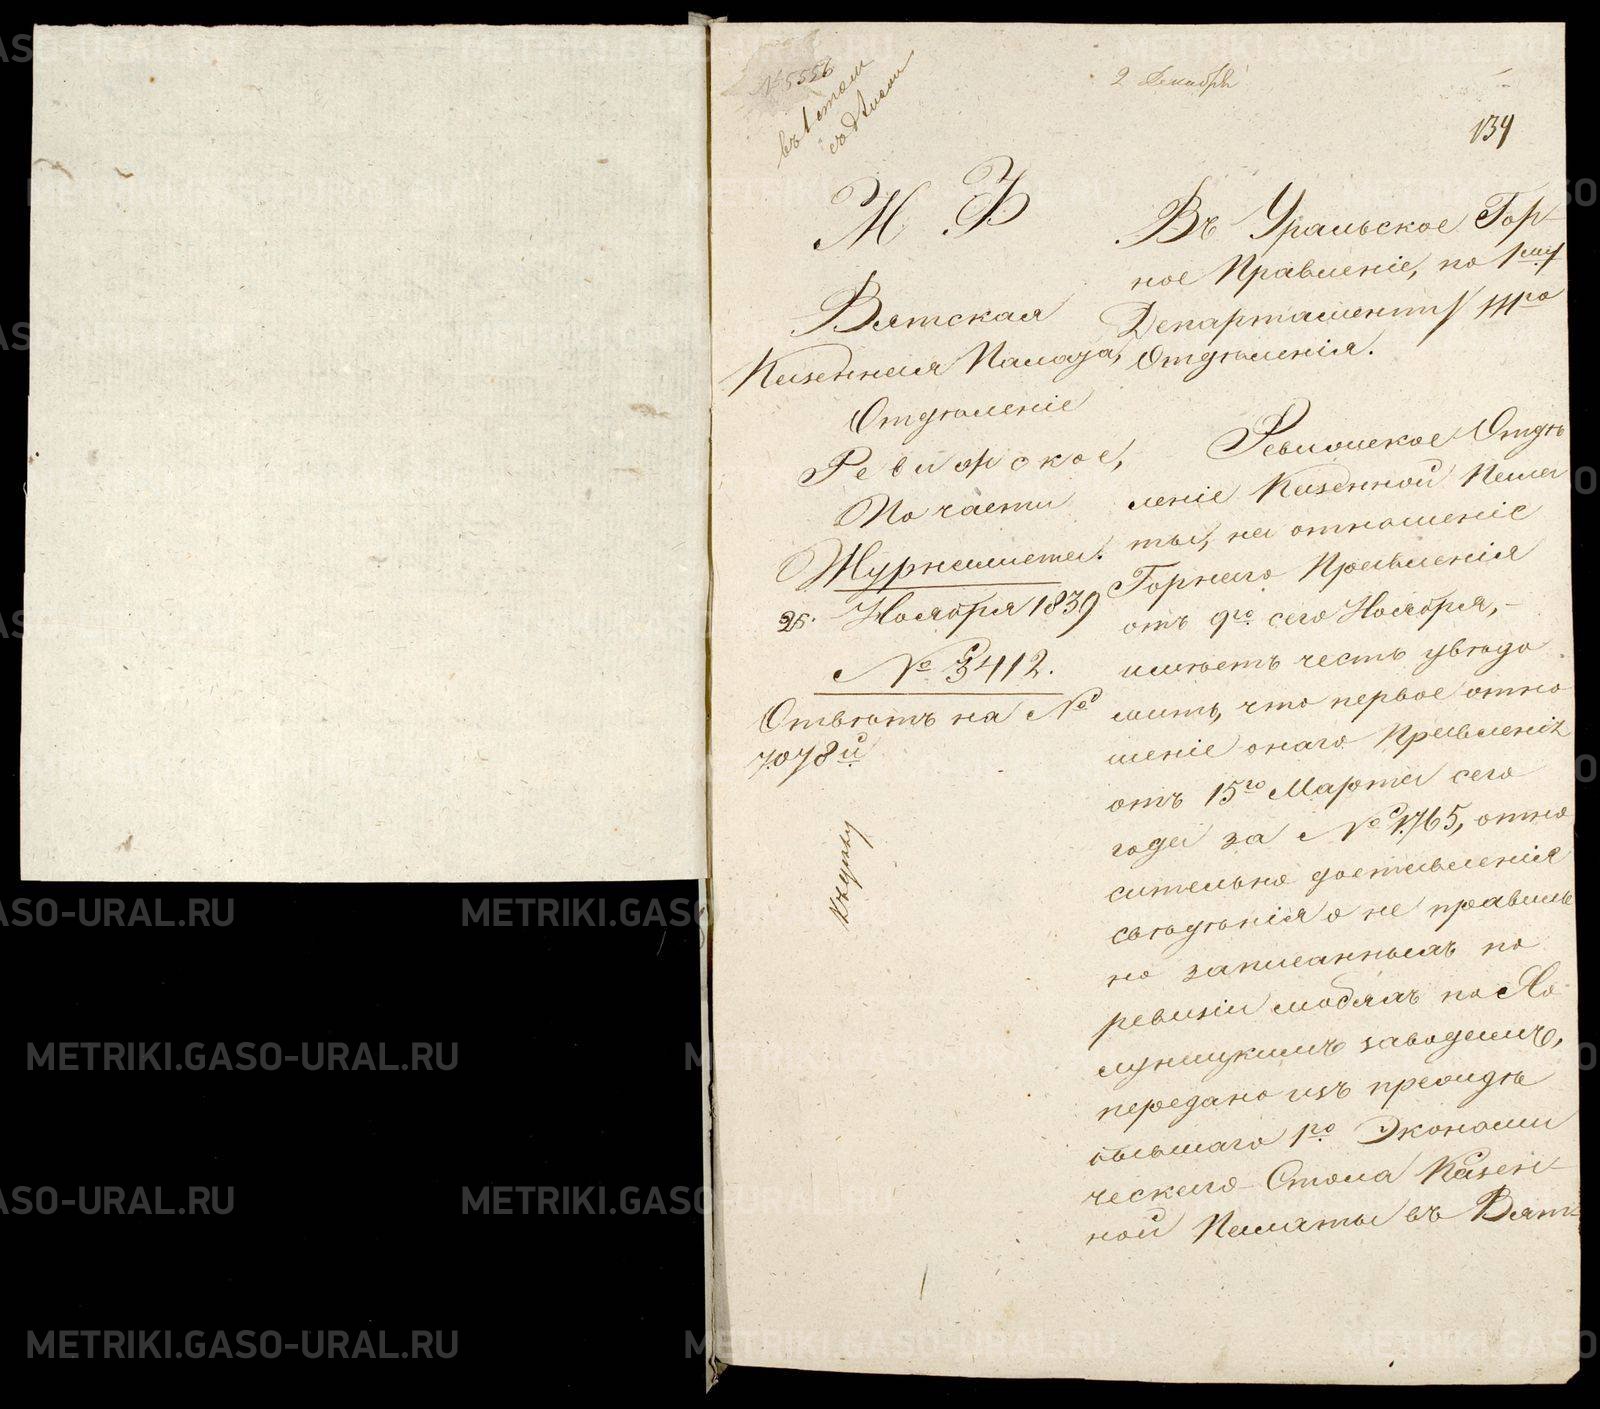 № 5556
въ 1 столъ
2 Декабря
134
М. Ф.
Вятская
Казенная Палата,
Отдѣленіе
Ревизское,
По части
Журналиста.
25. Ноября 1839
№ 3412.
Отвѣтъ на №
7078й
Къ дѣлу
Въ Уральское Гор-
ное Правленіе, по 1му
Департаменту IIIго
Отдѣленія.
Ревизское Отдѣ
леніе Казенной Пала
ты, на отношеніе
Горнаго Правленія
отъ 9го сего Ноября, -
имѣетъ честь увѣдо
мить, что первое отно
шеніе онаго Правленія
отъ 15го Марта сего
года за № 1765, отно
сительно доставленія
свѣдѣнія о не правиль
но записанныхъ по
ревизіи людяхъ по Хо
луницкимъ заводамъ,
передано изъ преждѣ
бывшаго 1го Экономи
ческаго Стола Казен-
ной Палаты въ Вят
METRIKI.GASO-URAL.RU